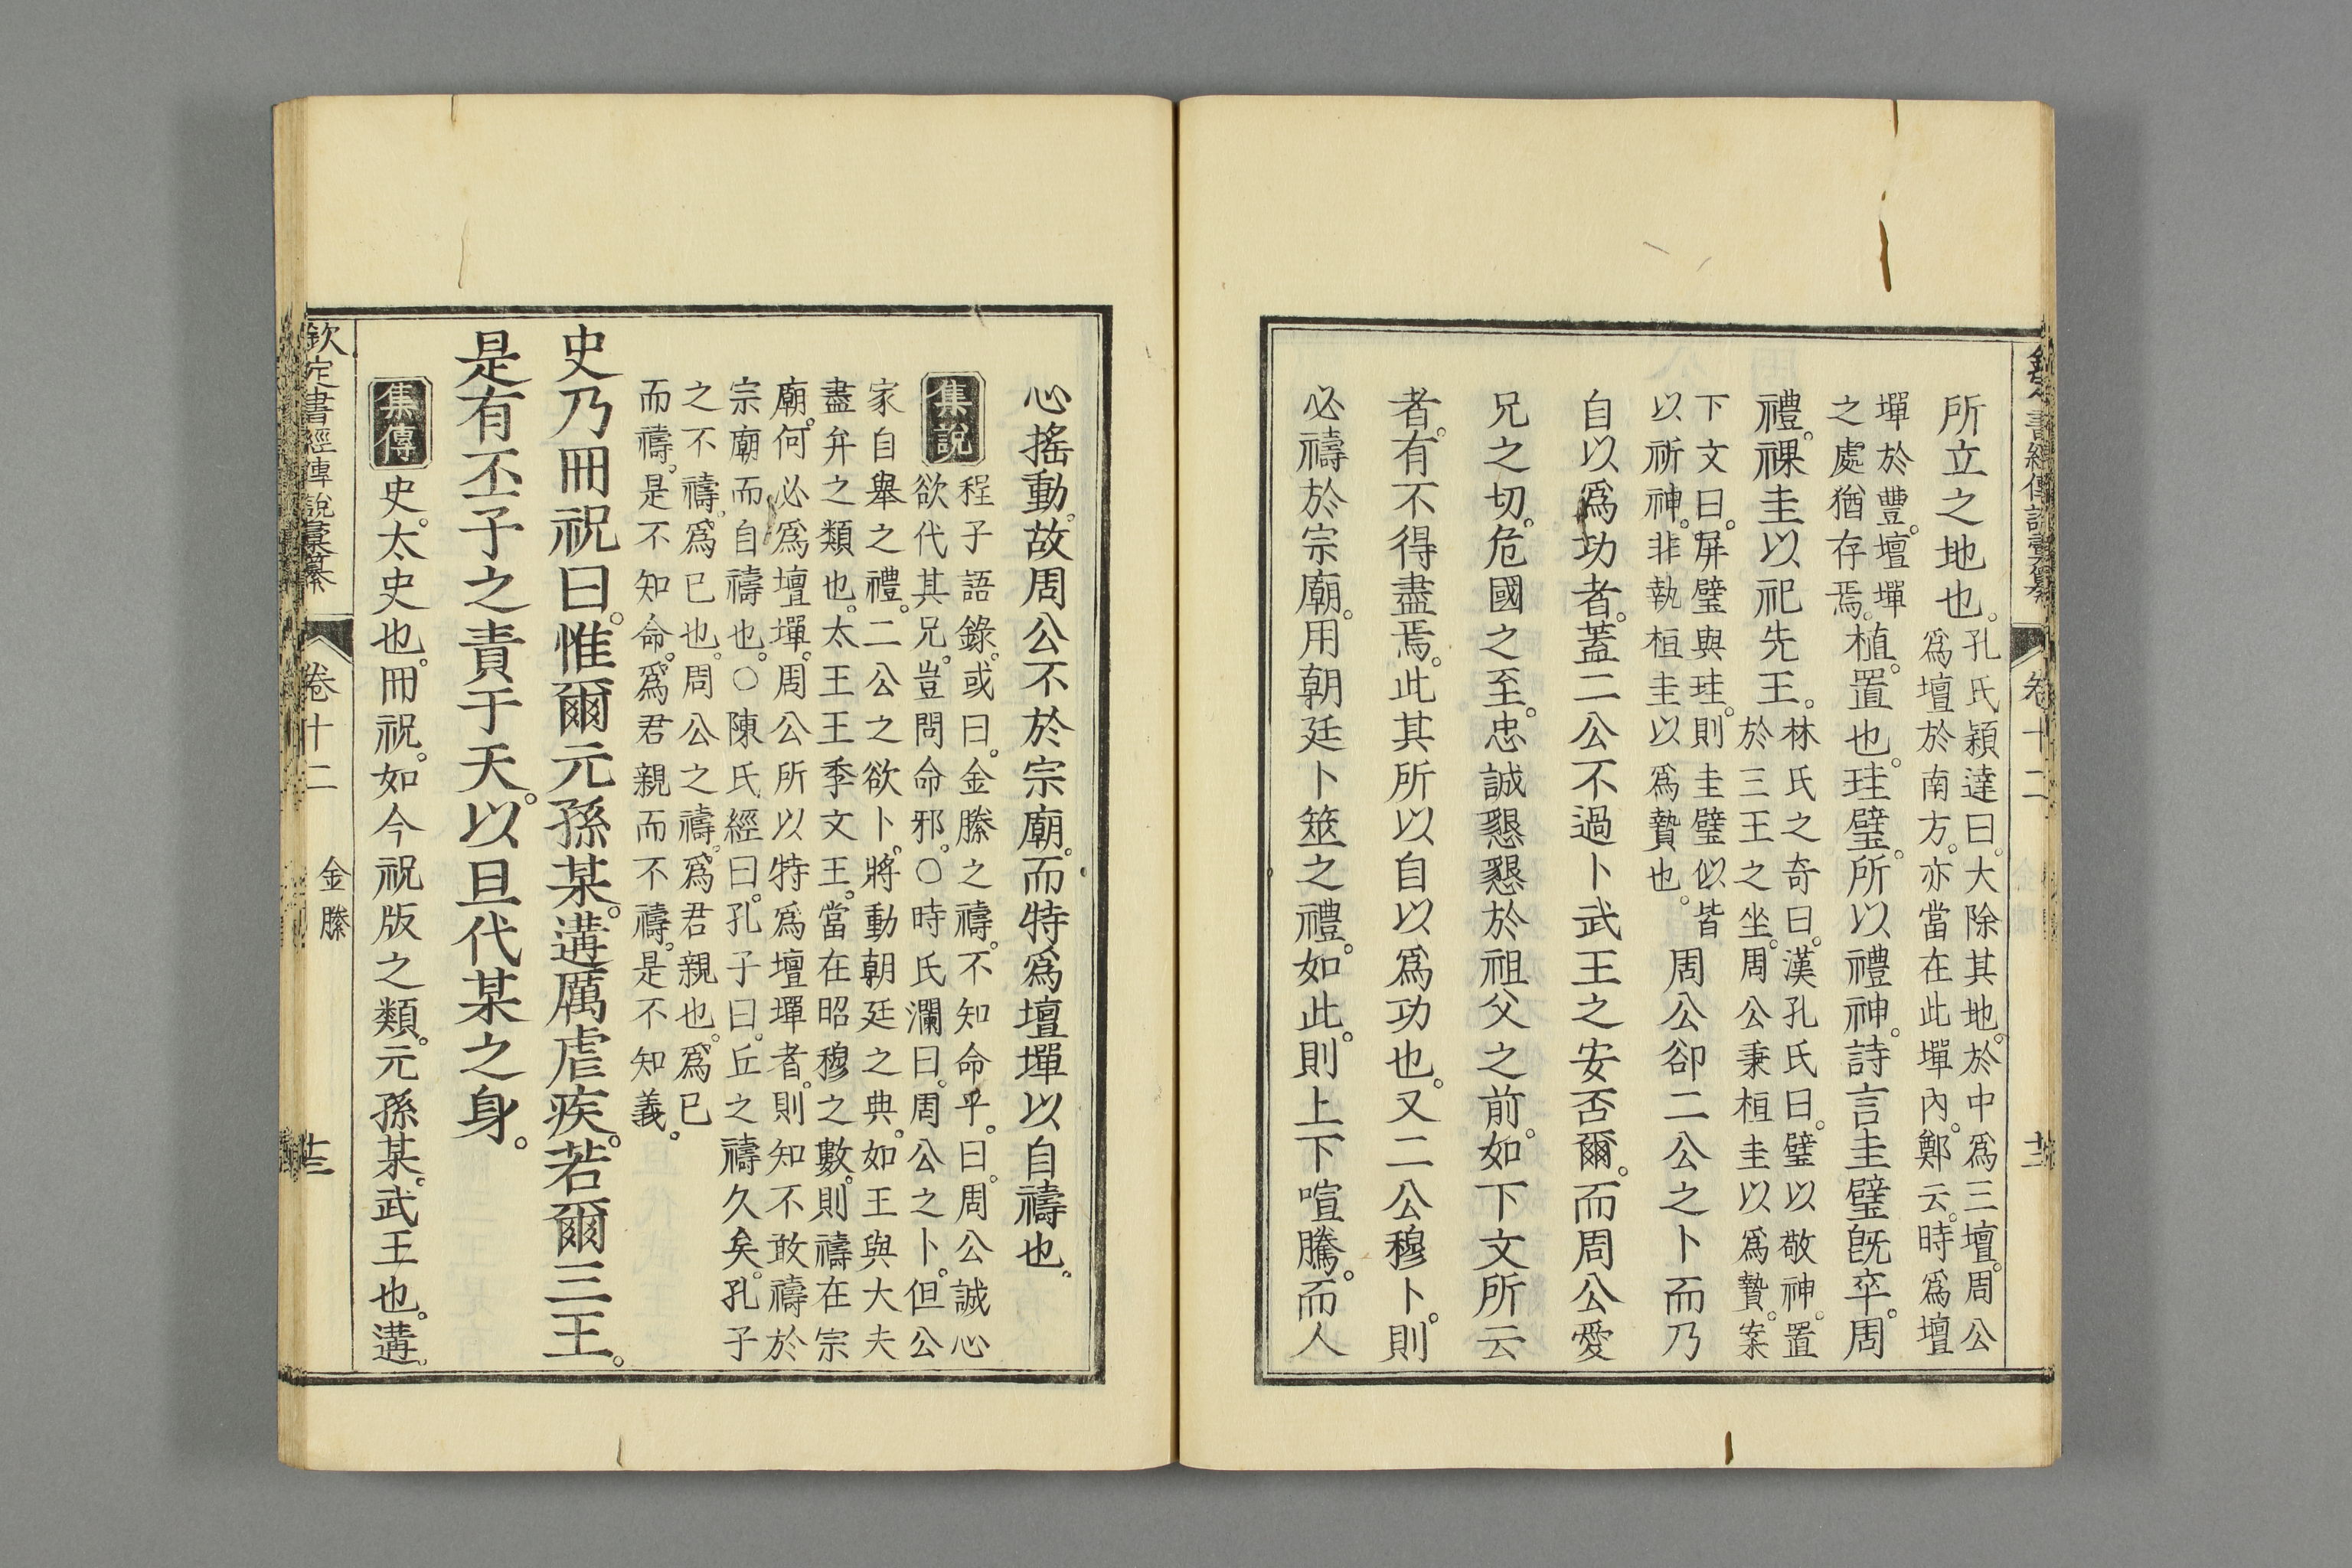 書經傳說彙纂 卷十二
所立之地也。
孔氏穎達曰。大除其地。於中爲三壇。周公
爲壇於南方。亦當在此墠內。鄭云。時爲壇
墠於豐。壇墠
之處猶存焉。
植。置也。珪璧。所以禮神。詩言圭璧旣卒。周
禮。祼圭以祀先王。
林氏之奇曰。漢孔氏曰。璧以敬神。置
於三王之坐。周公秉桓圭以爲贄。案
下文曰。屏璧與珪。則圭璧似皆
以祈神。非執桓圭以爲贄也。
周公卻二公之卜而乃
自以爲功者。蓋二公不過卜武王之安否爾。而周公愛
兄之切。危國之至。忠誠懇懇於祖父之前。如下文所云
者。有不得盡焉。此其所以自以爲功也。又二公穆卜。則
必禱於宗廟。用朝廷卜筮之禮。如此。則上下喧騰。而人
心搖動。故周公不於宗廟。而特爲壇墠以自禱也。
集說
程子語錄。或曰。金縢之禱。不知命乎。曰。周公誠心
欲代其兄。豈問命邪。○時氏瀾曰。周公之卜。但公
家自舉之禮。二公之欲卜。將動朝廷之典。如王與大夫
盡弁之類也。太王王季文王。當在昭穆之數。則禱在宗
廟。何必爲壇墠。周公所以特爲壇墠者。則知不敢禱於
宗廟而自禱也。○陳氏經曰。孔子曰。丘之禱久矣。孔子
之不禱。爲已也。周公之禱。爲君親也。爲已
而禱。是不知命。爲君親而不禱。是不知義。
史乃冊祝曰。惟爾元孫某。遘厲虐疾。若爾三王。
是有丕子之責于天。以旦代某之身。
集傳
史。太史也。冊祝。如今祝版之類。元孫某。武王也。遘。
欽定書經傳說彙纂 卷十二 金縢